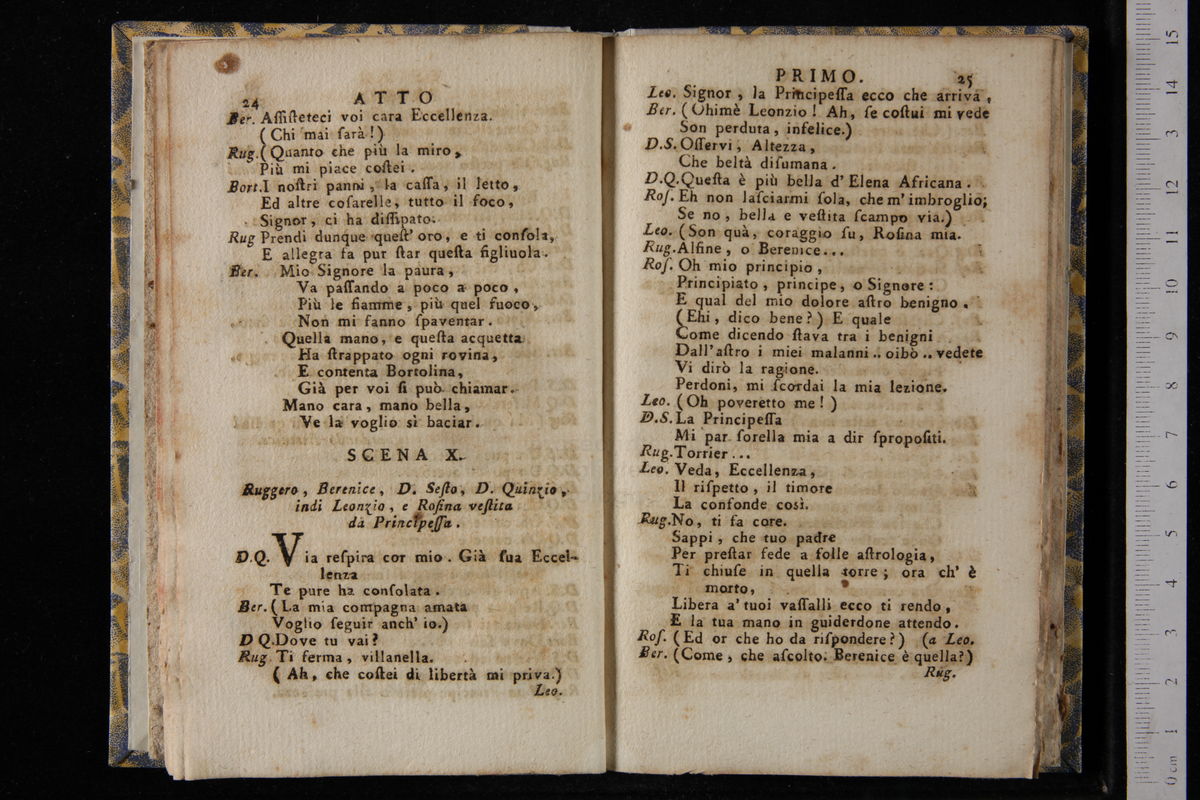 24 ATTO
Ber. Aſſiſteteci voi cara Eccellenza.
(Chi mai ſarà!)
Rug. (Quanto che più la miro,
Più mi piace coſtei.
Bort. I noſtri panni, la caſſa, il letto,
Ed altre coſarelle, tutto il foco,
Signor, ci ha diſſipato.
Rug Prendi dunque queſt' oro, e ti conſola,
E allegra fa pur ſtar queſta figliuola.
Ber. Mio Signore la paura,
Va paſſando a poco a poco,
Più le fiamme, più quel fuoco,
Non mi fanno ſpaventar.
Quella mano, e queſta acquetta
Ha ſtrappato ogni rovina,
E contenta Bortolina,
Già per voi ſi può chiamar.
Mano cara, mano bella,
Ve la voglio sì baciar.
SCENA X.
Ruggero, Berenice, D. Seſto, D. Quinzio,
indi Leonzio, e Roſina veſtita
da Principeſſa.
D.Q. Via reſpira cor mio. Già ſua Eccel-
lenza
Te pure ha conſolata.
Ber. (La mia compagna amata
Voglio ſeguir anch' io.)
D Q. Dove tu vai?
Rug Ti ferma, villanella.
(Ah, che coſtei di libertà mi priva.)
Leo.
PRIMO. 25
Leo. Signor, la Principeſſa ecco che arriva,
Ber. (Ohimè Leonzio! Ah, ſe coſtui mi vede
Son perduta, infelice.)
D.S. Oſſervi, Altezza,
Che beltà diſumana.
D.Q. Queſta è più bella d' Elena Africana.
Roſ. Eh non laſciarmi ſola, che m' imbroglio;
Se no, bella e veſtita ſcampo via.)
Leo. (Son quà, coraggio ſu, Roſina mia.
Rug. Alfine, o Berenice...
Roſ. Oh mio principio,
Principiato, principe, o Signore:
E qual del mio dolore aſtro benigno.
(Ehi, dico bene?) E quale
Come dicendo ſtava tra i benigni
Dall' aſtro i miei malanni.. oibò.. vedete
Vi dirò la ragione.
Perdoni, mi ſcordai la mia lezione.
Leo. (Oh poveretto me!)
D.S. La Principeſſa
Mi par ſorella mia a dir ſpropoſiti.
Rug. Torrier...
Leo. Veda, Eccellenza,
Il riſpetto, il timore
La confonde così.
Rug. No, ti fa core.
Sappi, che tuo padre
Per preſtar fede a folle aſtrologia,
Ti chiuſe in quella torre; ora ch' è
morto,
Libera a' tuoi vaſſalli ecco ti rendo,
E la tua mano in guiderdone attendo.
Roſ. (Ed or che ho da riſpondere?) (a Leo.
Ber. (Come, che aſcolto. Berenice è quella?)
Rug.
0 cm 1 2 3 4 5 6 7 8 9 10 11 12 13 14 15